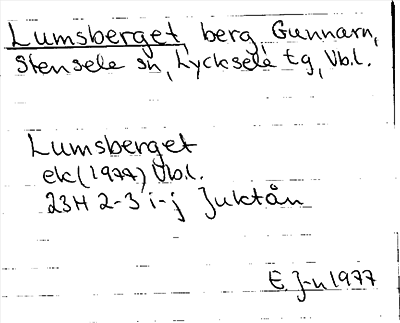 Lumsberget, berg, Gunnarn,
Stensele sn, Lycksele tg, Vb.l.
Lumsberget
ek (1977) Vb.l.
23H 2-3 i-j Juktån
E. J-n 1977